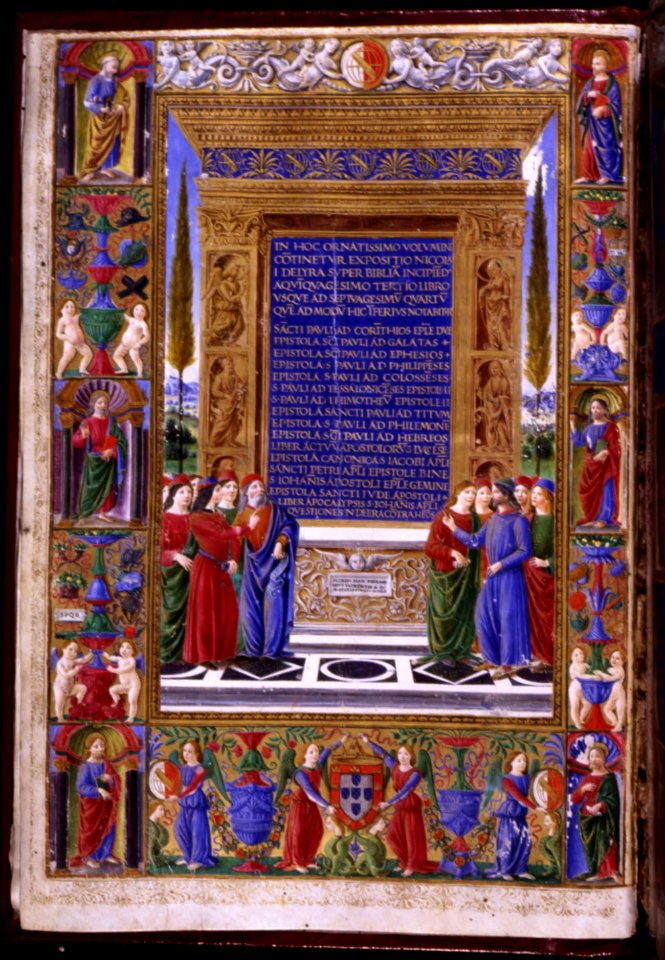 IN HOC ORNATISSIMO VOLVMIN
CŌTINETVR EXPOSITIO NICOLS
I DELYRA SVPER BIBLIĀ INCIPIED
AQVĪQVAGESIMO TERTIO LIBRO
VSQVE AD SEPTVAGESIMV̄ QVARTV̄
QVE AD MODV̄ HIC IFERIVS NOTABITVR
SĀCTI PAVLI AD CORĪTHIOS EPLE DVE
EPISTOLA SCĪ PAVLI AD GALATAS
EPISTOLA SCĪ PAVLI AD EPHESIOS
EPISTOLA S PAVLI AD PHILIPPĒSES
EPISTOLA S PAVLI AD COLOSSĒSES
S PAVLI AD TESSALONICĒSES EPISTOLE II
S PAVLI AD TIMOTHEV̄ EPISTOLE II
EPISTOLA SANCTI PAVLI AD TITVM
EPISTOLA S PAVLI AD PHILEMONE
EPISTOLA SCTI PAVLI AD HEBREOS
LIBER ACTVV̄ APOSTOLORV̄
EPISTOLA CANONICA S IACOBI APLI
SĀNCTI PETRI APLI EPISTOLE BINE
S IOHAN̄IS APOSTOLI EPLE GEMINE
EPISTOLA SANCTI IVDE APOSTOLI
LIBER APOCALYPSIS S IOHAN̄IS APLI
QVESTIONES N DELIRA CŌTRA HEBREOS
SPQR